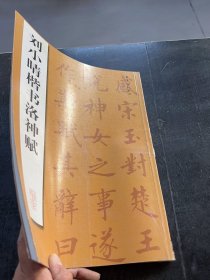 刘小晴楷书洛神赋
感宋玉對楚王
神女之事遂
斯賦其辭曰